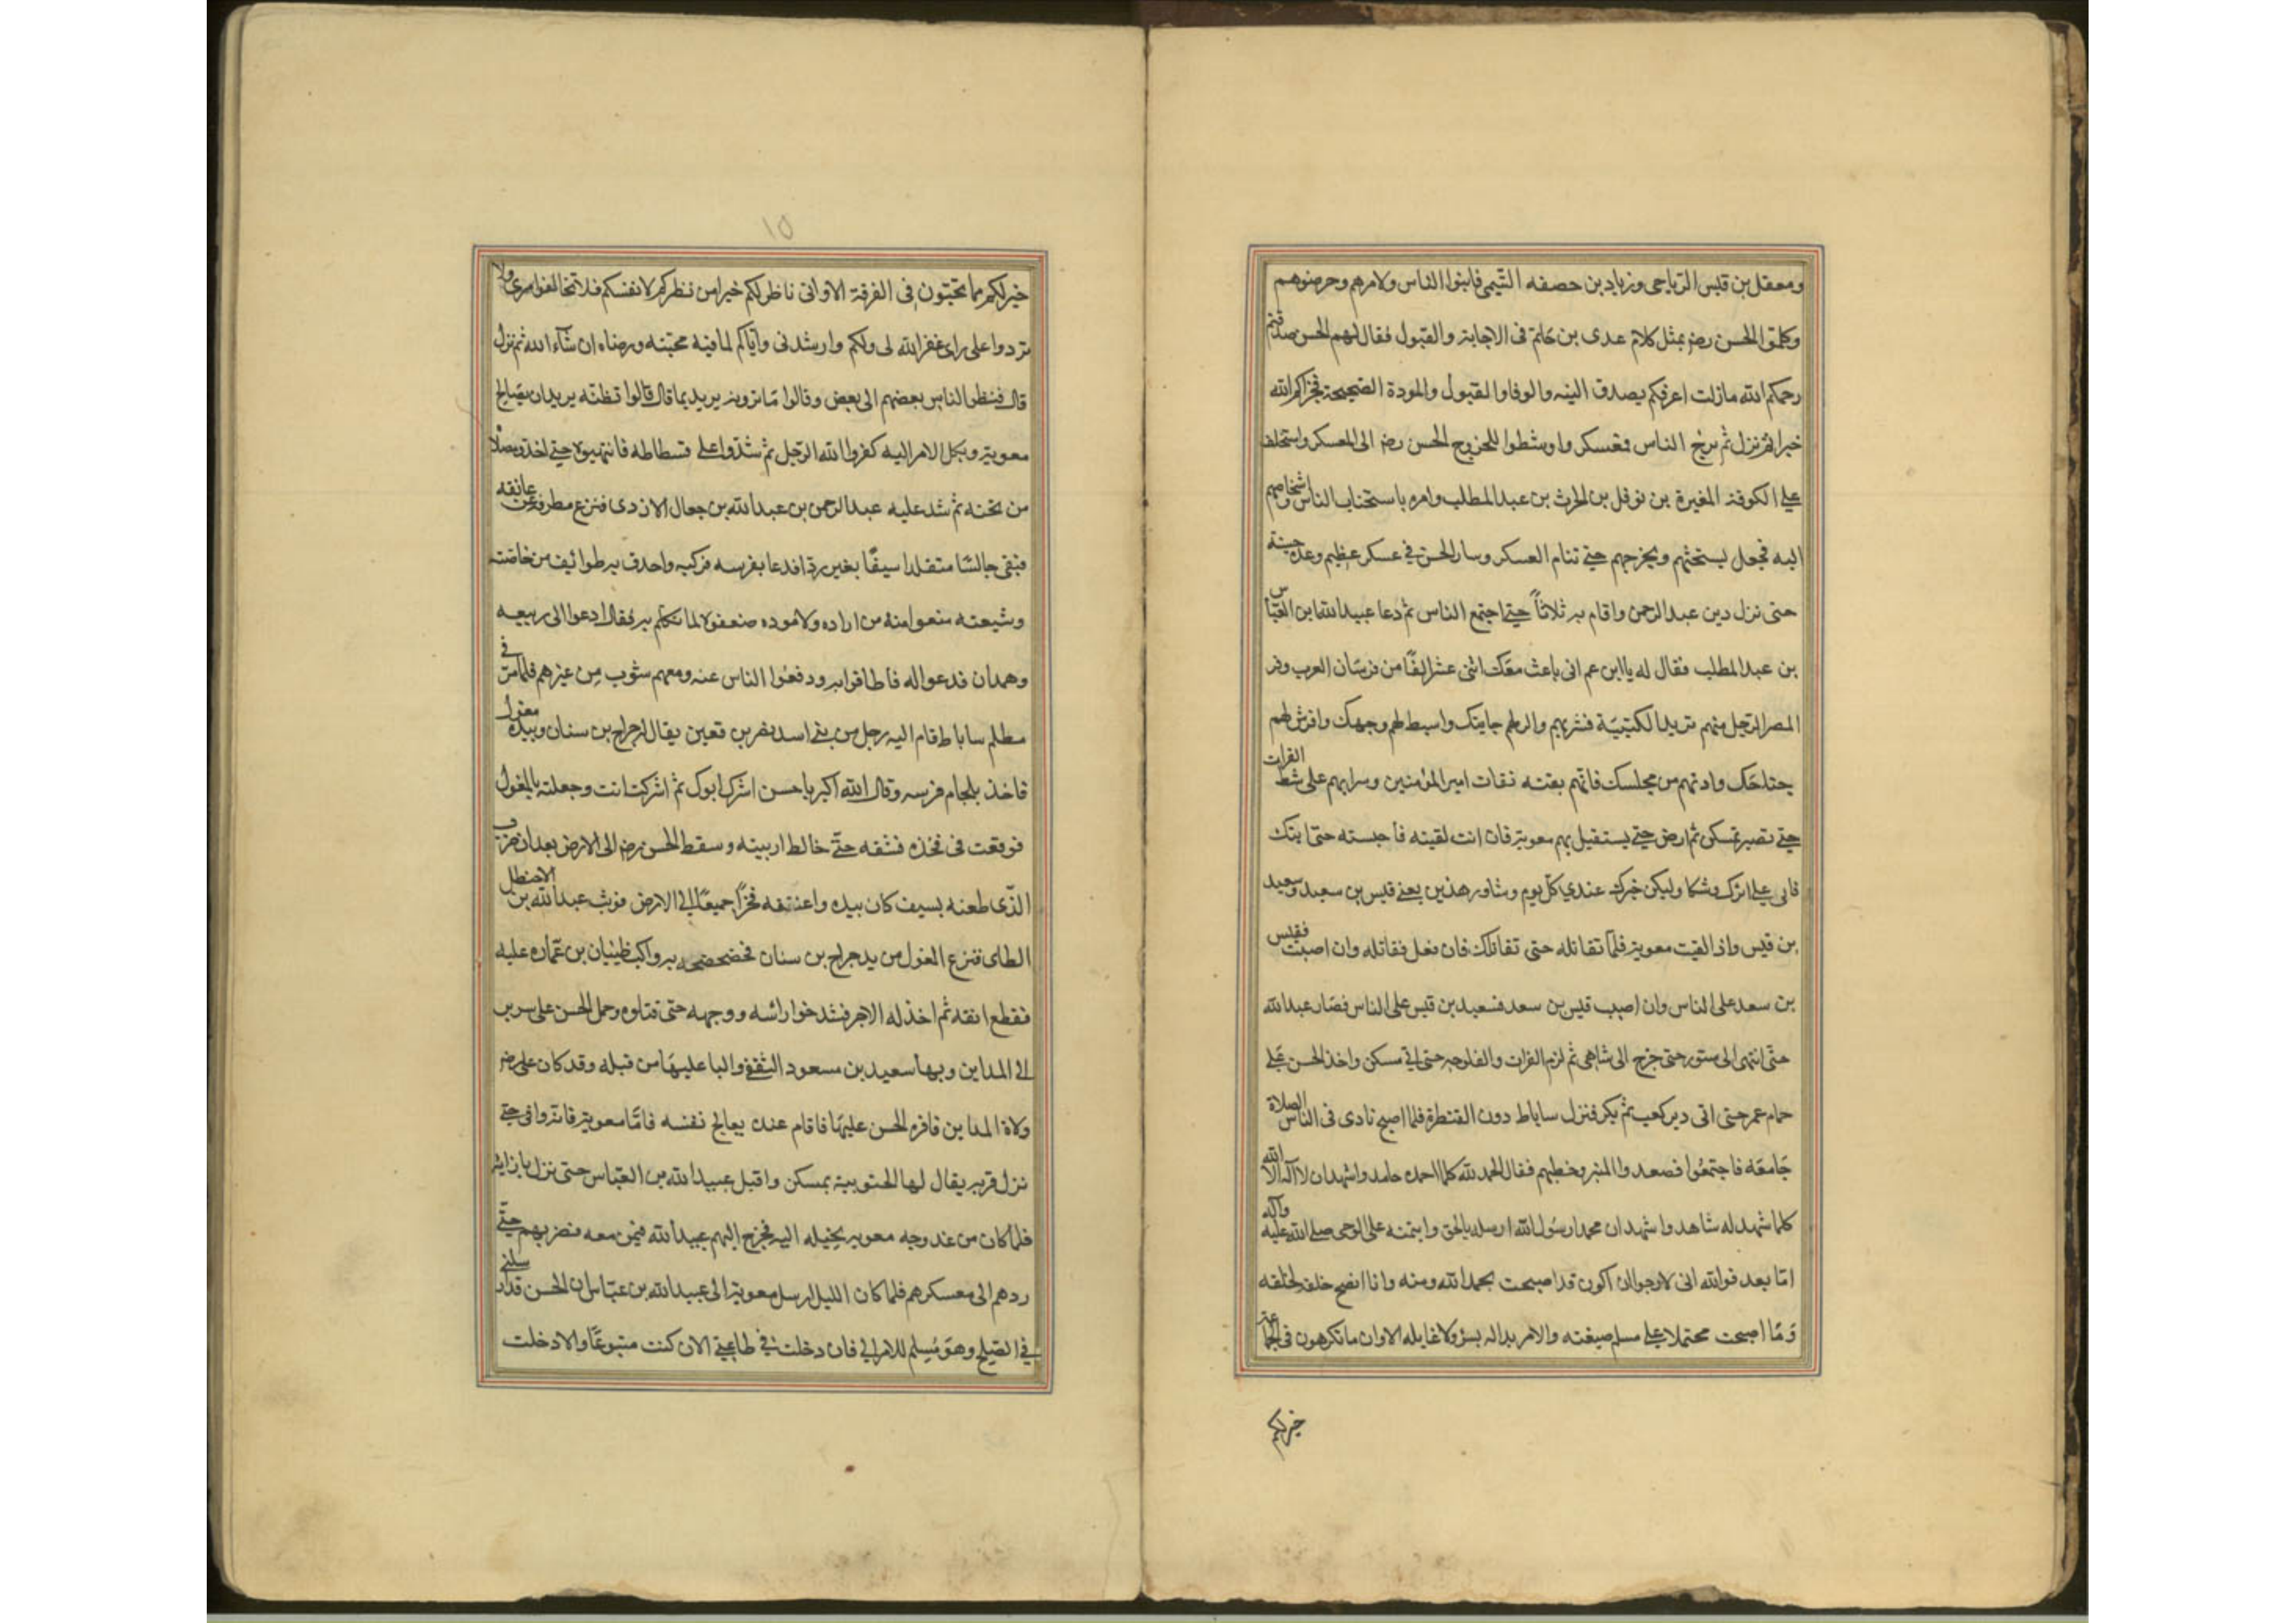 ومعقل بن قيس الرياحى وزياد بن حصفه التيمى فانبوا الناس ولامرهم وحرضوهم
وكلموا الحسن رضر بمثل كلام عدى بن حاتم فى الاجابة والقبول فقال لهم الحسن صدقتم
رحمكم الله مازلت اعرفكم بصدق النيه والوفا والقبول والمودة الصحيحة فجزاكم الله
خيرا ثم نزل ثم خرج الناس فعسكر واونشطوا للخروج الحسن رضر الى المعسكر واستخلف
على الكوفة المغيرة بن نوفل بن الحرث بن عبد المطلب وامره باستحثاث الناس واشخاصهم
اليه فجعل يستحثهم ويخرجهم حتى تنام العسكر وسار الحسن فى عسكر عظيم وعدة حسنة
حتى نزل دير عبد الرحمن واقام به ثلاثاً حتى اجتمع الناس ثم دعا عبيد الله ابن العباس
بن عبد المطلب فقال له يا ابن عم انى باعث معك اثنى عشر الفًا من فرسان العرب وقر
المصر الرجل منهم يزيد الكتيبة فسر بهم والن لهم جانبك وابسط لهم وجهك وافرش لهم
جناحك وادنهم من مجلسك فانهم بقية ثقات امير المؤمنين وسر بهم على شط الفرات
حتى تصير بمسكن ثم ارض حتى يستقبل بهم معوية فان انت لقيته فاحبسه حتى اتيك
فانى على اثرك وشكا وليكن خبرك عندي كل يوم وشاور هذين يعنى قيس بن سعيد وسعيد
بن قيس واذا لقيت معوية فلا تقاتله حتى تقاتلك فان فعل فقاتله وان اصبت فقيس
بن سعد على الناس وان اصيب قيس بن سعد فسعيد بن قيس على الناس فصار عبد الله
حتى انتهى الى ستور حتى خرج الى شاهى ثم لزم الفرات والفلوجه حتى اتى مسكن واخذ الحسن على
حمام عمر حتى اتى دير كعب ثم بكر فنزل ساباط دون القنطرة فلما اصبح نادى فى الناس الصلاة
جامعة فاجتمعوا فصعد المنبر وخطبهم فقال الحمد لله كلما احمده حامد واشهد ان لا اله الا الله
كلما شهد له شاهد واشهد ان محمدا رسول الله ارسله بالحق وايتمنه على الوحى صلى الله عليه وآله
امّا بعد فوالله انى لارجو ان اكون قد اصبحت بحمد الله ومنه وانا انصح خلقه لخلقه
وما اصبحت محتملا على مسلم ضيغنه والامر بداله بسؤ ولا غايله الا وان ما تكرهون فى الجماعة
خير لكم
١٥
خير لكم مما تحبون فى الفرقة الا وانى ناظر لكم خيرا من نظركم لانفسكم فلا تخالفوا امرى ولا
تردوا على راى غفر الله لى ولكم وارشدنى واياكم لما فيه محبته ورضاه ان شآء الله ثم نزل
قال فنظر الناس بعضهم الى بعض وقالوا ما ترونه يريد بما قال قالوا نظنه يريد ان يصالح
معوية ويكل الامر اليه كفر والله الرجل ثم شدوا على فسطاطه فانتهبوه حتى اخذو مصلاه
من تحته ثم شد عليه عبد الرحمن بن عبد الله بن جعال الازدى فنزع مطرفه عن عاتقه
فبقى جالسًا متقلدا سيفًا بغير ردا فدعا بفرسه فركبه واحدق به طوائف من خاصته
وشيعته منعوا منه من اراده ولاموه وضعفوه لما تكلم به فقال ادعوا الى ربيعه
وهمدان فدعوا له فاطافوا به ودفعوا الناس عنه ومعهم شوب من غيرهم فلما مرّ فى
مظلم ساباط قام اليه رجل من بنى اسد نفر بن قعين يقال له جراح بن سنان وبيده مغول
فاخذ بلجام فرسه وقال الله اكبر يا حسن اشرك ابوك ثم اشركت انت وجعلته بالمغول
فوقعت فى فخذه فشقه حتّى خالط اربيته وسقط الحسن رضر الى الارض بعد ان ضرب
الذى طعنه بسيف كان بيده واعتنقه فخرّا جميعًا الى الارض فوثب عبد الله بن الاخطل
الطاى فنزع المغول من يد جراح بن سنان فخضخضه به واكب ظبيان بن عمّاره عليه
فقطع انفه ثم اخذ له الاجر فشدخوا راسه ووجهه حتى قتلوه وحمل الحسن على سرير
الى المداين وبها سعيد بن مسعود الثقفى واليا عليها من قبله وقد كان على رضر
ولاه المداين فاقره الحسن عليها فاقام عنده يعالج نفسه فامّا معوية فانه وافى حتى
نزل قريه يقال لها الحبوبية بمسكن واقبل عبيد الله بن العباس حتى نزل بازائه
فلما كان من غد وجه معويه بخيله اليه فخرج اليهم عبيد الله فيمن معه فضربهم حتّى
ردهم الى معسكرهم فلما كان الليل ارسل معوية الى عبيد الله بن عبّاس ان الحسن قد ارسلنى
فى الصلح وهو مُسلم للامر الى فان دخلت فى طاعتى الان كنت متبوعًا والا دخلت